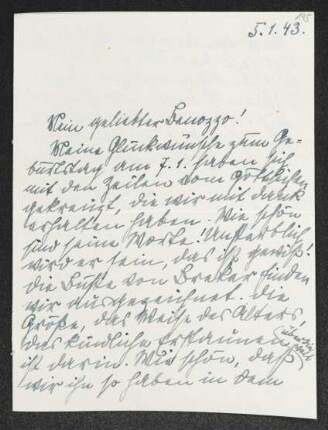 195
5.1.43.
Mein geliebter Benozzo!
Meine Glückwünsche zum Ge-
burtstag am 7.1. haben sich
mit den Zeilen vom
gekreuzt, die wir mit Dank
erhalten haben. Wie schön
sind seine Worte! Unsterblich
wird er sein, das ist gewiß!
Die Büste von Breker finden
wir ausgezeichnet. Die
Größe, das Weise des Alters
das kindliche Erstaunen
ist darin. Wie schön, daß
wir ihn so haben in dem